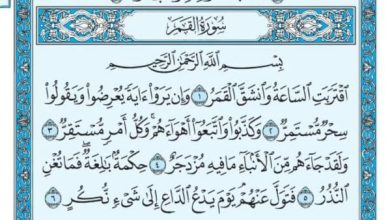 سُورَةُ القَمَرِ
بِسْمِ اللَّهِ الرَّحْمَٰنِ الرَّحِيمِ
اقْتَرَبَتِ السَّاعَةُ وَانشَقَّ الْقَمَرُ ١ وَإِن يَرَوْا ءَايَةً يُعْرِضُوا وَيَقُولُوا
سِحْرٌ مُّسْتَمِرٌّ ٢ وَكَذَّبُوا وَاتَّبَعُوا أَهْوَاءَهُمْ وَكُلُّ أَمْرٍ مُّسْتَقِرٌّ ٣
وَلَقَدْ جَاءَهُم مِّنَ الْأَنبَاءِ مَا فِيهِ مُزْدَجَرٌ ٤ حِكْمَةٌ بَالِغَةٌ فَمَا تُغْنِ
النُّذُرُ ٥ فَتَوَلَّ عَنْهُمْ يَوْمَ يَدْعُ الدَّاعِ إِلَىٰ شَيْءٍ نُّكُرٍ ٦